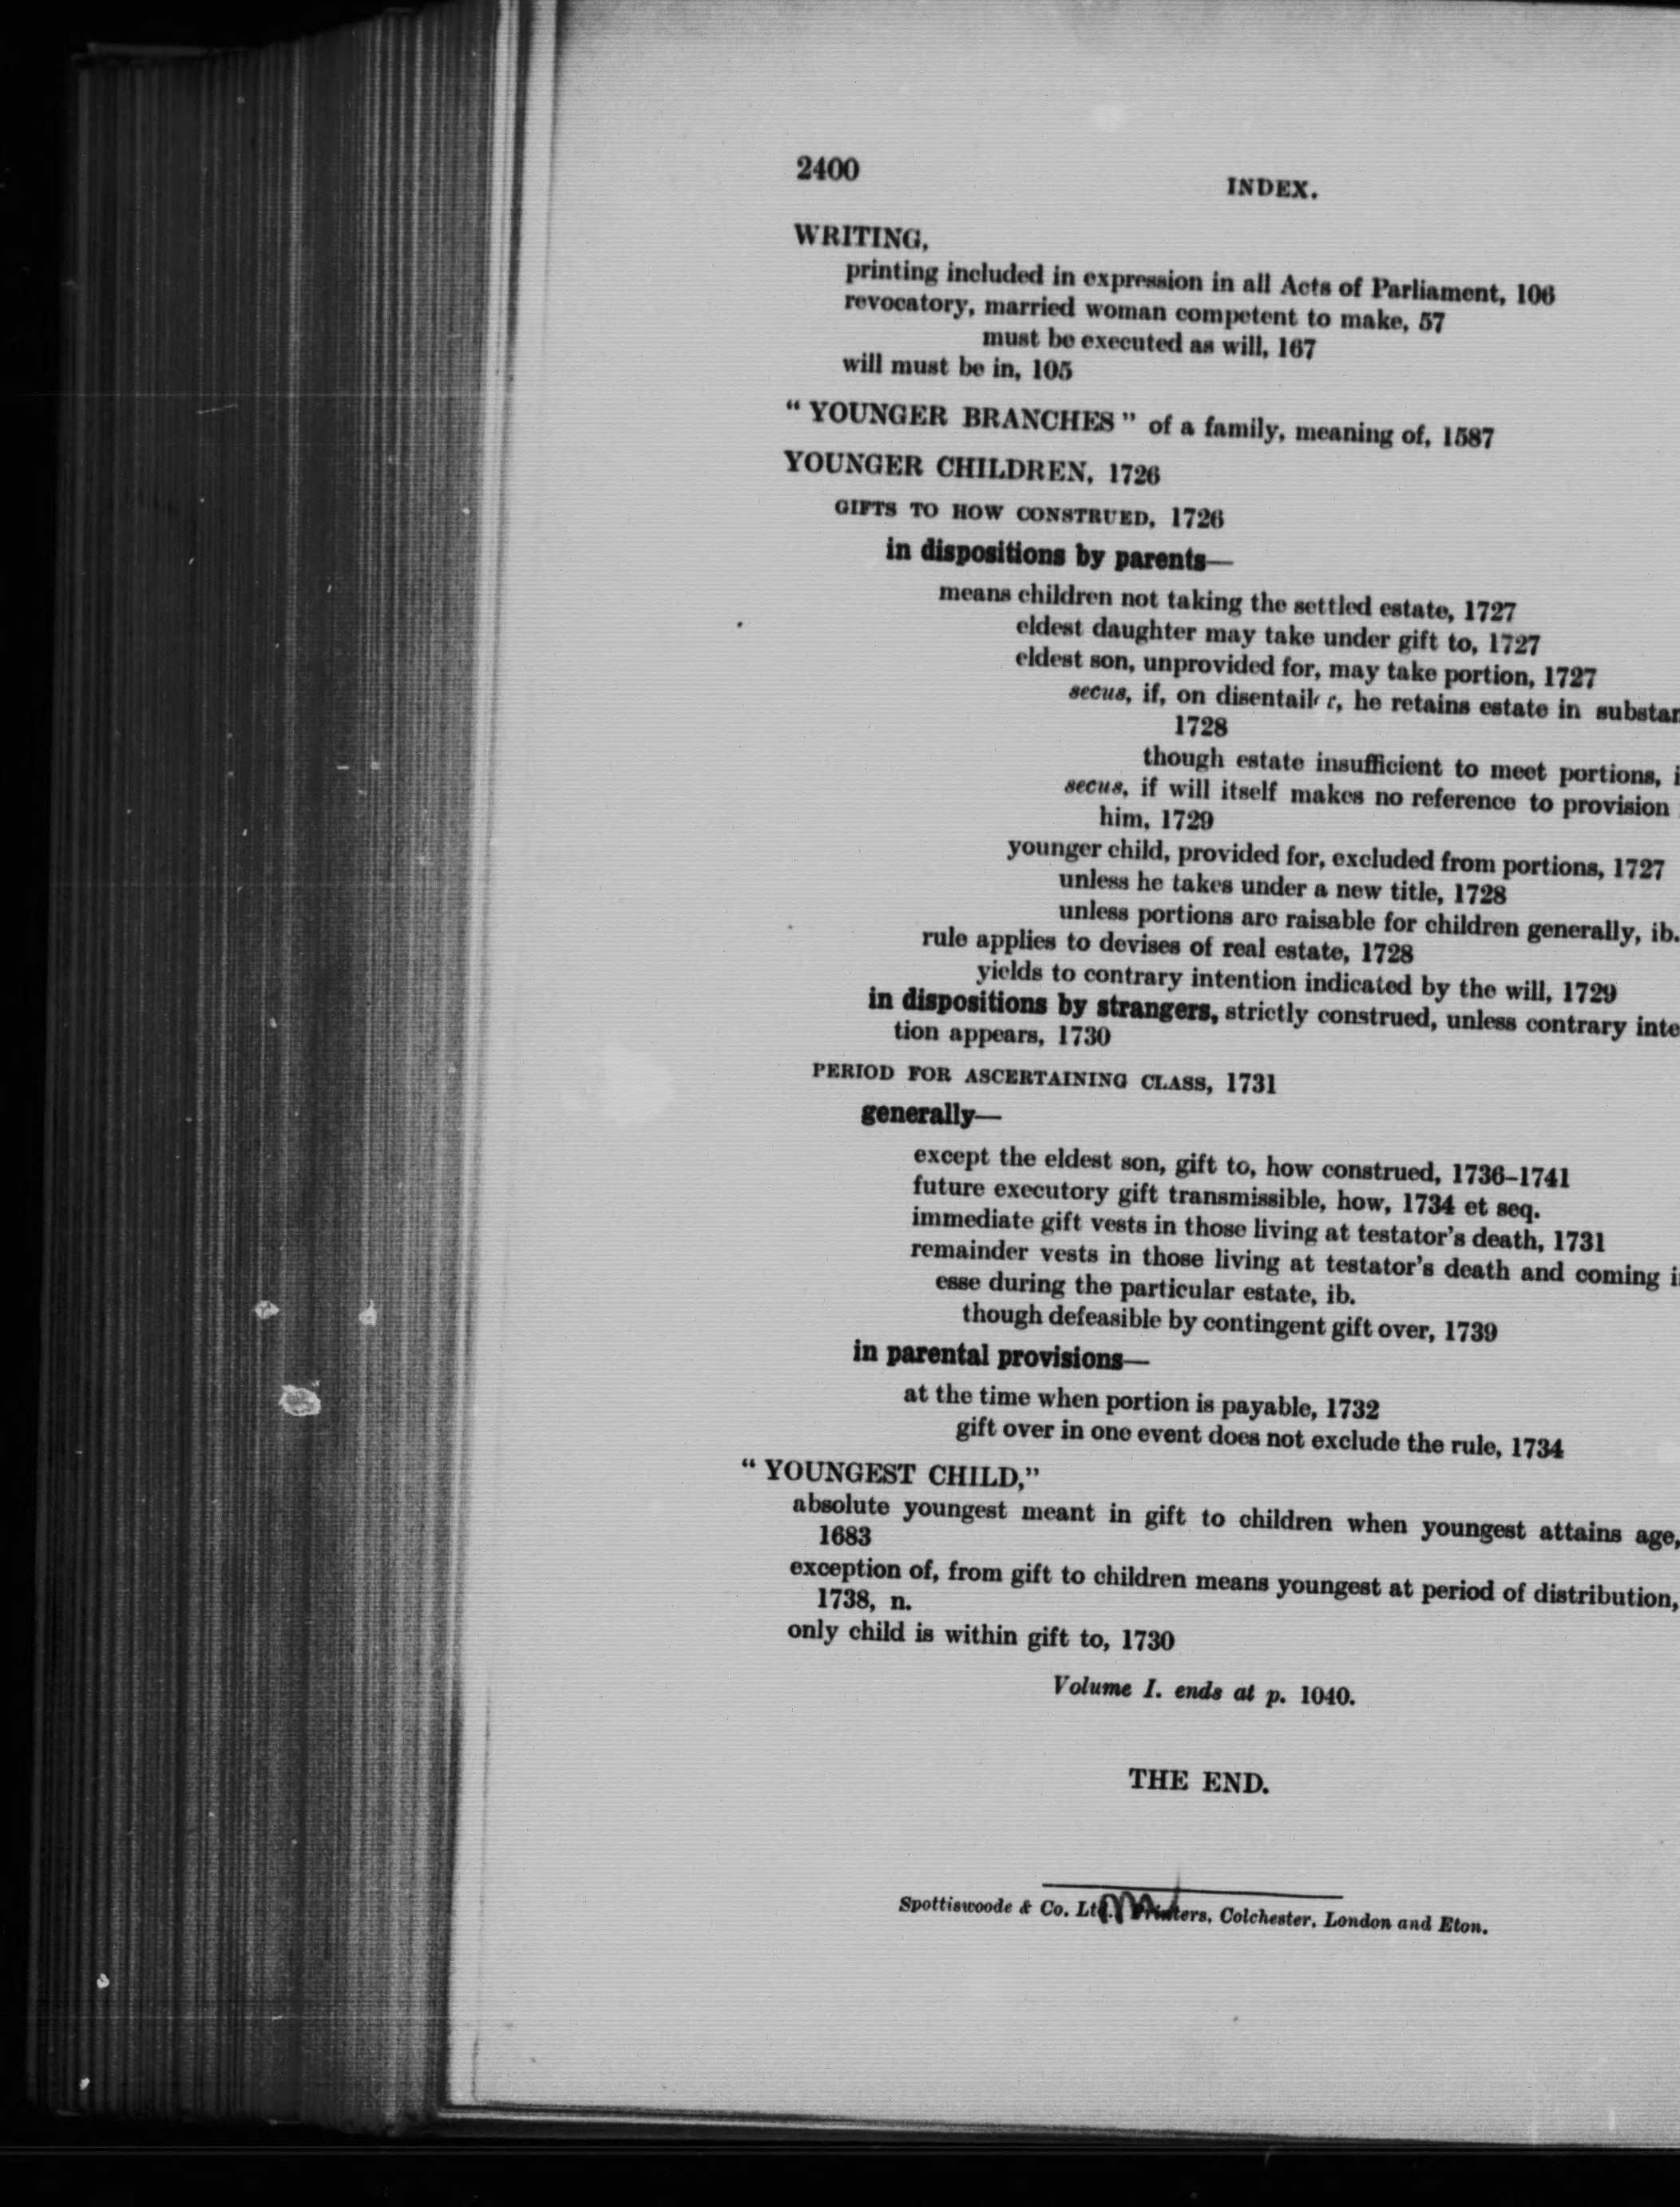 2400
INDEX.
WRITING,
printing included in expression in all Acts of Parliament, 106
revocatory, married woman competent to make, 57
must be executed as will, 167
will must be in, 105
“ YOUNGER BRANCHES ” of a family, meaning of, 1587
YOUNGER CHILDREN, 1726
GIFTS TO HOW CONSTRUED, 1726
in dispositions by parents—
means children not taking the settled estate, 1727
eldest daughter may take under gift to, 1727
eldest son, unprovided for, may take portion, 1727
secus, if, on disentailer, he retains estate in
1728
though estate insufficient to meet portions,
secus, if will itself makes no reference to provision
him, 1729
younger child, provided for, excluded from portions, 1727
unless he takes under a new title, 1728
unless portions are raisable for children generally, ib.
rule applies to devises of real estate, 1728
yields to contrary intention indicated by the will, 1729
in dispositions by strangers, strictly construed, unless contrary inte
tion appears, 1730
PERIOD FOR ASCERTAINING CLASS, 1731
generally—
except the eldest son, gift to, how construed, 1736–1741
future executory gift transmissible, how, 1734 et seq.
immediate gift vests in those living at testator's death, 1731
remainder vests in those living at testator's death and coming
esse during the particular estate, ib.
though defeasible by contingent gift over, 1739
in parental provisions—
at the time when portion is payable, 1732
gift over in one event does not exclude the rule, 1734
“ YOUNGEST CHILD,”
absolute youngest meant in gift to children when youngest attains age,
1683
exception of, from gift to children means youngest at period of distribution,
1738, n.
only child is within gift to, 1730
Volume I. ends at p. 1040.
THE END.
Spottiswoode & Co. Ltd. Printers, Colchester, London and Eton.